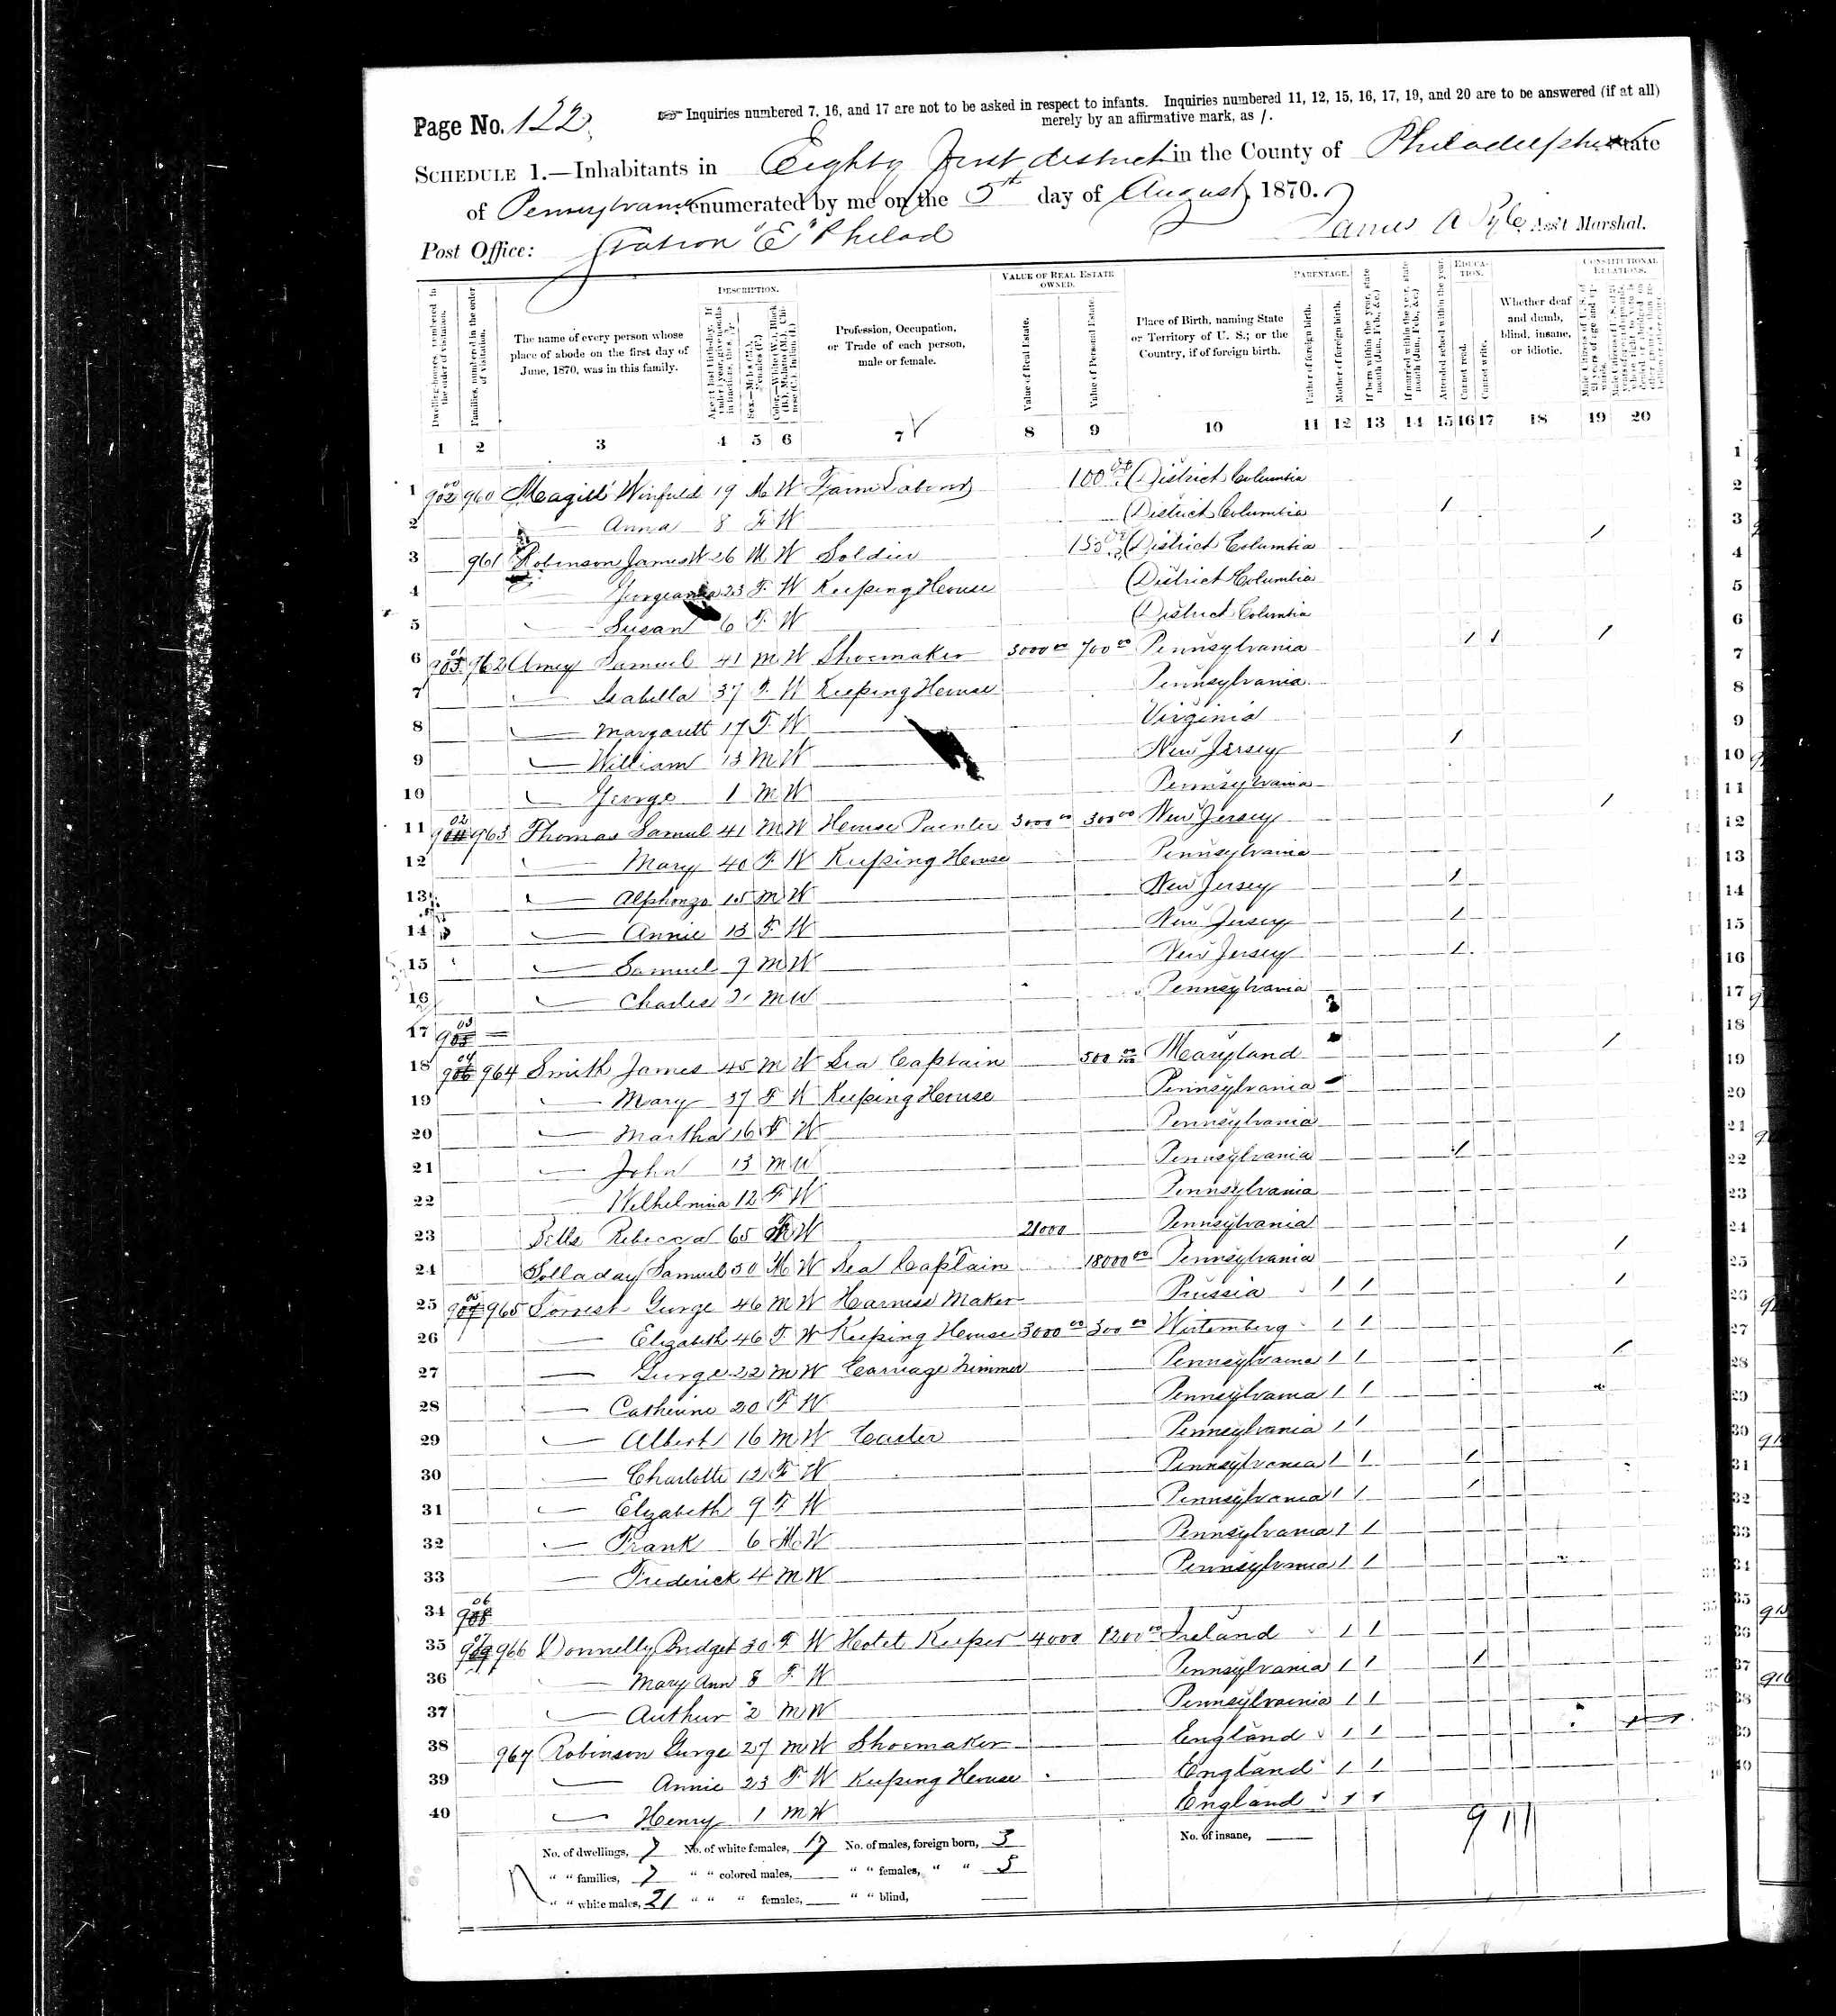 Page No. 122
Inquiries numbered 7, 16, and 17 are not to be asked in respect to infants. Inquiries numbered 11, 12, 15, 16, 17, 19, and 20 are to be answered (if at all)
merely by an affirmative mark, as /.
SCHEDULE 1.—Inhabitants in Eighty first district in the County of Philadelphia State
of Pennsylvania enumerated by me on the 5th day of August, 1870.
Post Office: Station "E" Philad James A Pyle Ass't Marshal.
DESCRIPTION. VALUE OF REAL ESTATE OWNED. PARENTAGE. EDUCATION. CONSTITUTIONAL RELATIONS.
Dwelling-houses, numbered in the order of visitation.
Families, numbered in the order of visitation.
The name of every person whose place of abode on the first day of June, 1870, was in this family.
Age at last birth-day. If under 1 year, give months in fractions, thus, 3/12.
Sex.—Males (M.), Females (F.)
Color.—White (W.), Black (B.), Mulatto (M.), Chinese (C.), Indian (I.)
Profession, Occupation, or Trade of each person, male or female.
Value of Real Estate.
Value of Personal Estate.
Place of Birth, naming State or Territory of U. S.; or the Country, if of foreign birth.
Father of foreign birth.
Mother of foreign birth.
If born within the year, state month (Jan., Feb., &c.)
If married within the year, state month (Jan., Feb., &c.)
Attended school within the year.
Cannot read.
Cannot write.
Whether deaf and dumb, blind, insane, or idiotic.
1 2 3 4 5 6 7 8 9 10 11 12 13 14 15 16 17 18 19 20
1 902 960 Magill Winfield 19 M W Farm Laborer 100 District Columbia
2 — Anna 8 F W District Columbia 1
3 961 Robinson James W 26 M W Soldier District Columbia 1
4 — Georgeanna 23 F W Keeping House District Columbia
5 — Susan 6 F W District Columbia
6 962 Samuel 41 M W Shoemaker 3000 00 700 00 Pennsylvania 1 1 1
7 — Isabella 37 F W Keeping House Pennsylvania
8 — Margarett 17 F W Virginia
9 — William 13 M W New Jersey 1
10 — George 1 M W Pennsylvania
11 904 963 Thomas Samuel 41 M W House Painter 3000 00 300 00 New Jersey 1
12 — Mary 40 F W Keeping House Pennsylvania
13 — Alphonzo 15 M W New Jersey 1
14 — Annie 13 F W New Jersey 1
15 — Samuel 9 M W New Jersey 1
16 — Charles 2 M W Pennsylvania
17 905 —
18 906 964 Smith James 45 M W Sea Captain 500 00 Maryland 1
19 — Mary 37 F W Keeping House Pennsylvania
20 — Martha 16 F W Pennsylvania
21 — John 13 M W Pennsylvania 1
22 — Wilhelmina 12 F W Pennsylvania
23 Rebecca 65 F W 21000 Pennsylvania
24 Solladay Samuel 50 M W Sea Captain 18000 00 Pennsylvania 1
25 907 965 Forrest George 46 M W Harness Maker Prussia 1 1 1
26 — Elizabeth 46 F W Keeping House 3000 00 300 00 Wirtemberg 1 1
27 — George 22 M W Carriage Trimmer Pennsylvania 1 1 1
28 — Catherine 20 F W Pennsylvania 1 1
29 — Albert 16 M W Pennsylvania 1 1
30 — Charlotte 12 F W Pennsylvania 1 1 1
31 — Elizabeth 9 F W Pennsylvania 1 1 1
32 — Frank 6 M W Pennsylvania 1 1
33 — Frederick 4 M W Pennsylvania 1 1
34 908
35 909 966 Donnelly Bridget 30 F W Hotel Keeper 4000 1200 00 Ireland 1 1
36 — Mary Ann 8 F W Pennsylvania 1 1 1
37 — Authur 2 M W Pennsylvania 1 1
38 967 Robinson George 27 M W Shoemaker England 1 1
39 — Annie 23 F W Keeping House England 1 1
40 — Henry 1 M W England 1 1
No. of dwellings, 7 No. of white females, 17 No. of males, foreign born, 3 No. of insane, 9 11
" " families, 7 " " colored males, " " females, " " 5
" " white males, 21 " " " females, " " blind,